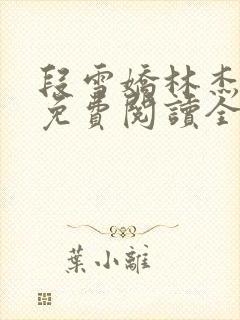 段雪嬌林杰
免費閱讀全
葉小離